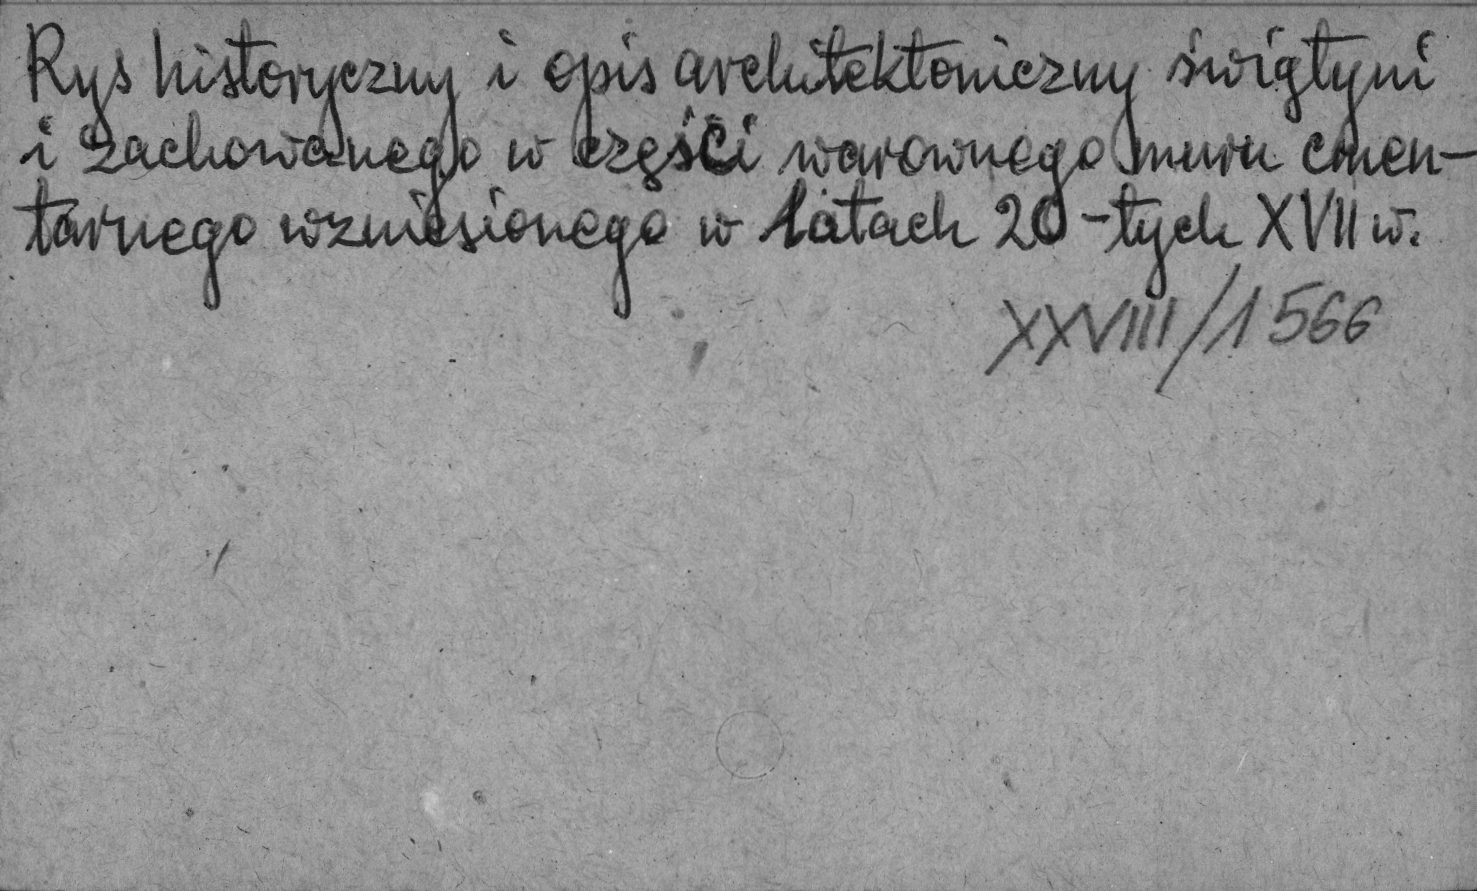 Rys historyczny i opis architektoniczny świątyni
i zachowanego w części warownego muru cmen-
tarnego wzniesionego w latach 20-tych XVII w.
XXVIII/1566